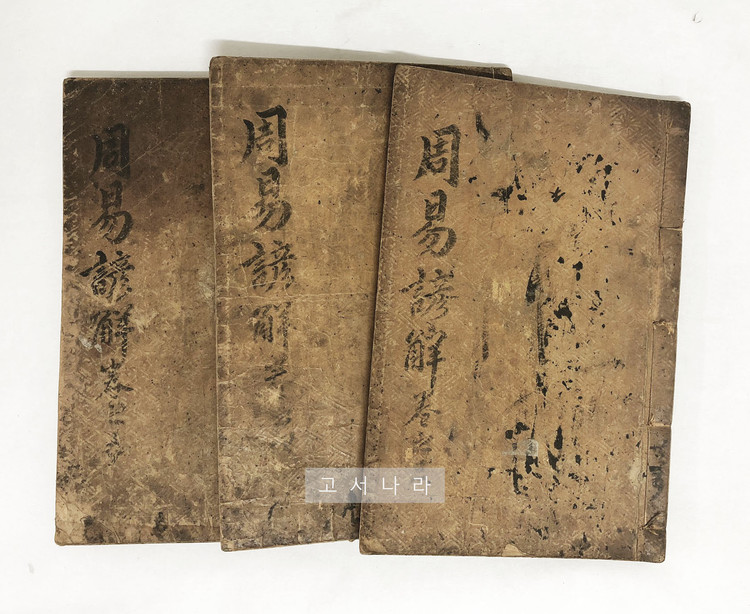 周易諺解卷
周易諺解
周易諺解卷
고서나라